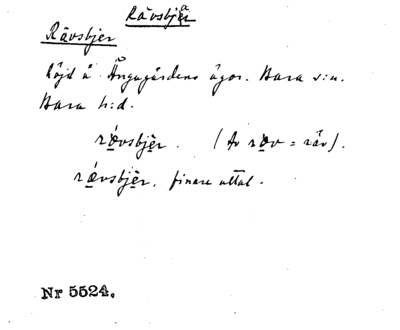 Rävsbjär
Rävsbjer
Höjd å Ängagårdens ägor. Hara s:n.
Hara h:d.
rǿvsbjèr. (Av røv = räv).
rǽvsbjèr, finare uttal.
Nr 5524.